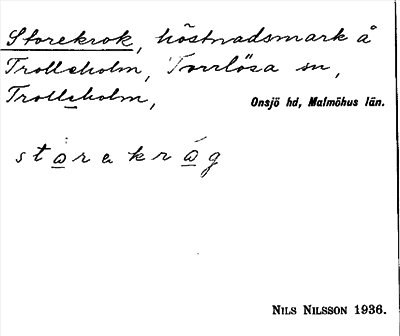 Storekrok, höstnadsmark å
Trollsholm, Torrlösa sn,
Trollsholm, Onsjö hd, Malmöhus län.
stȧrekrág
NILS NILSSON 1936.